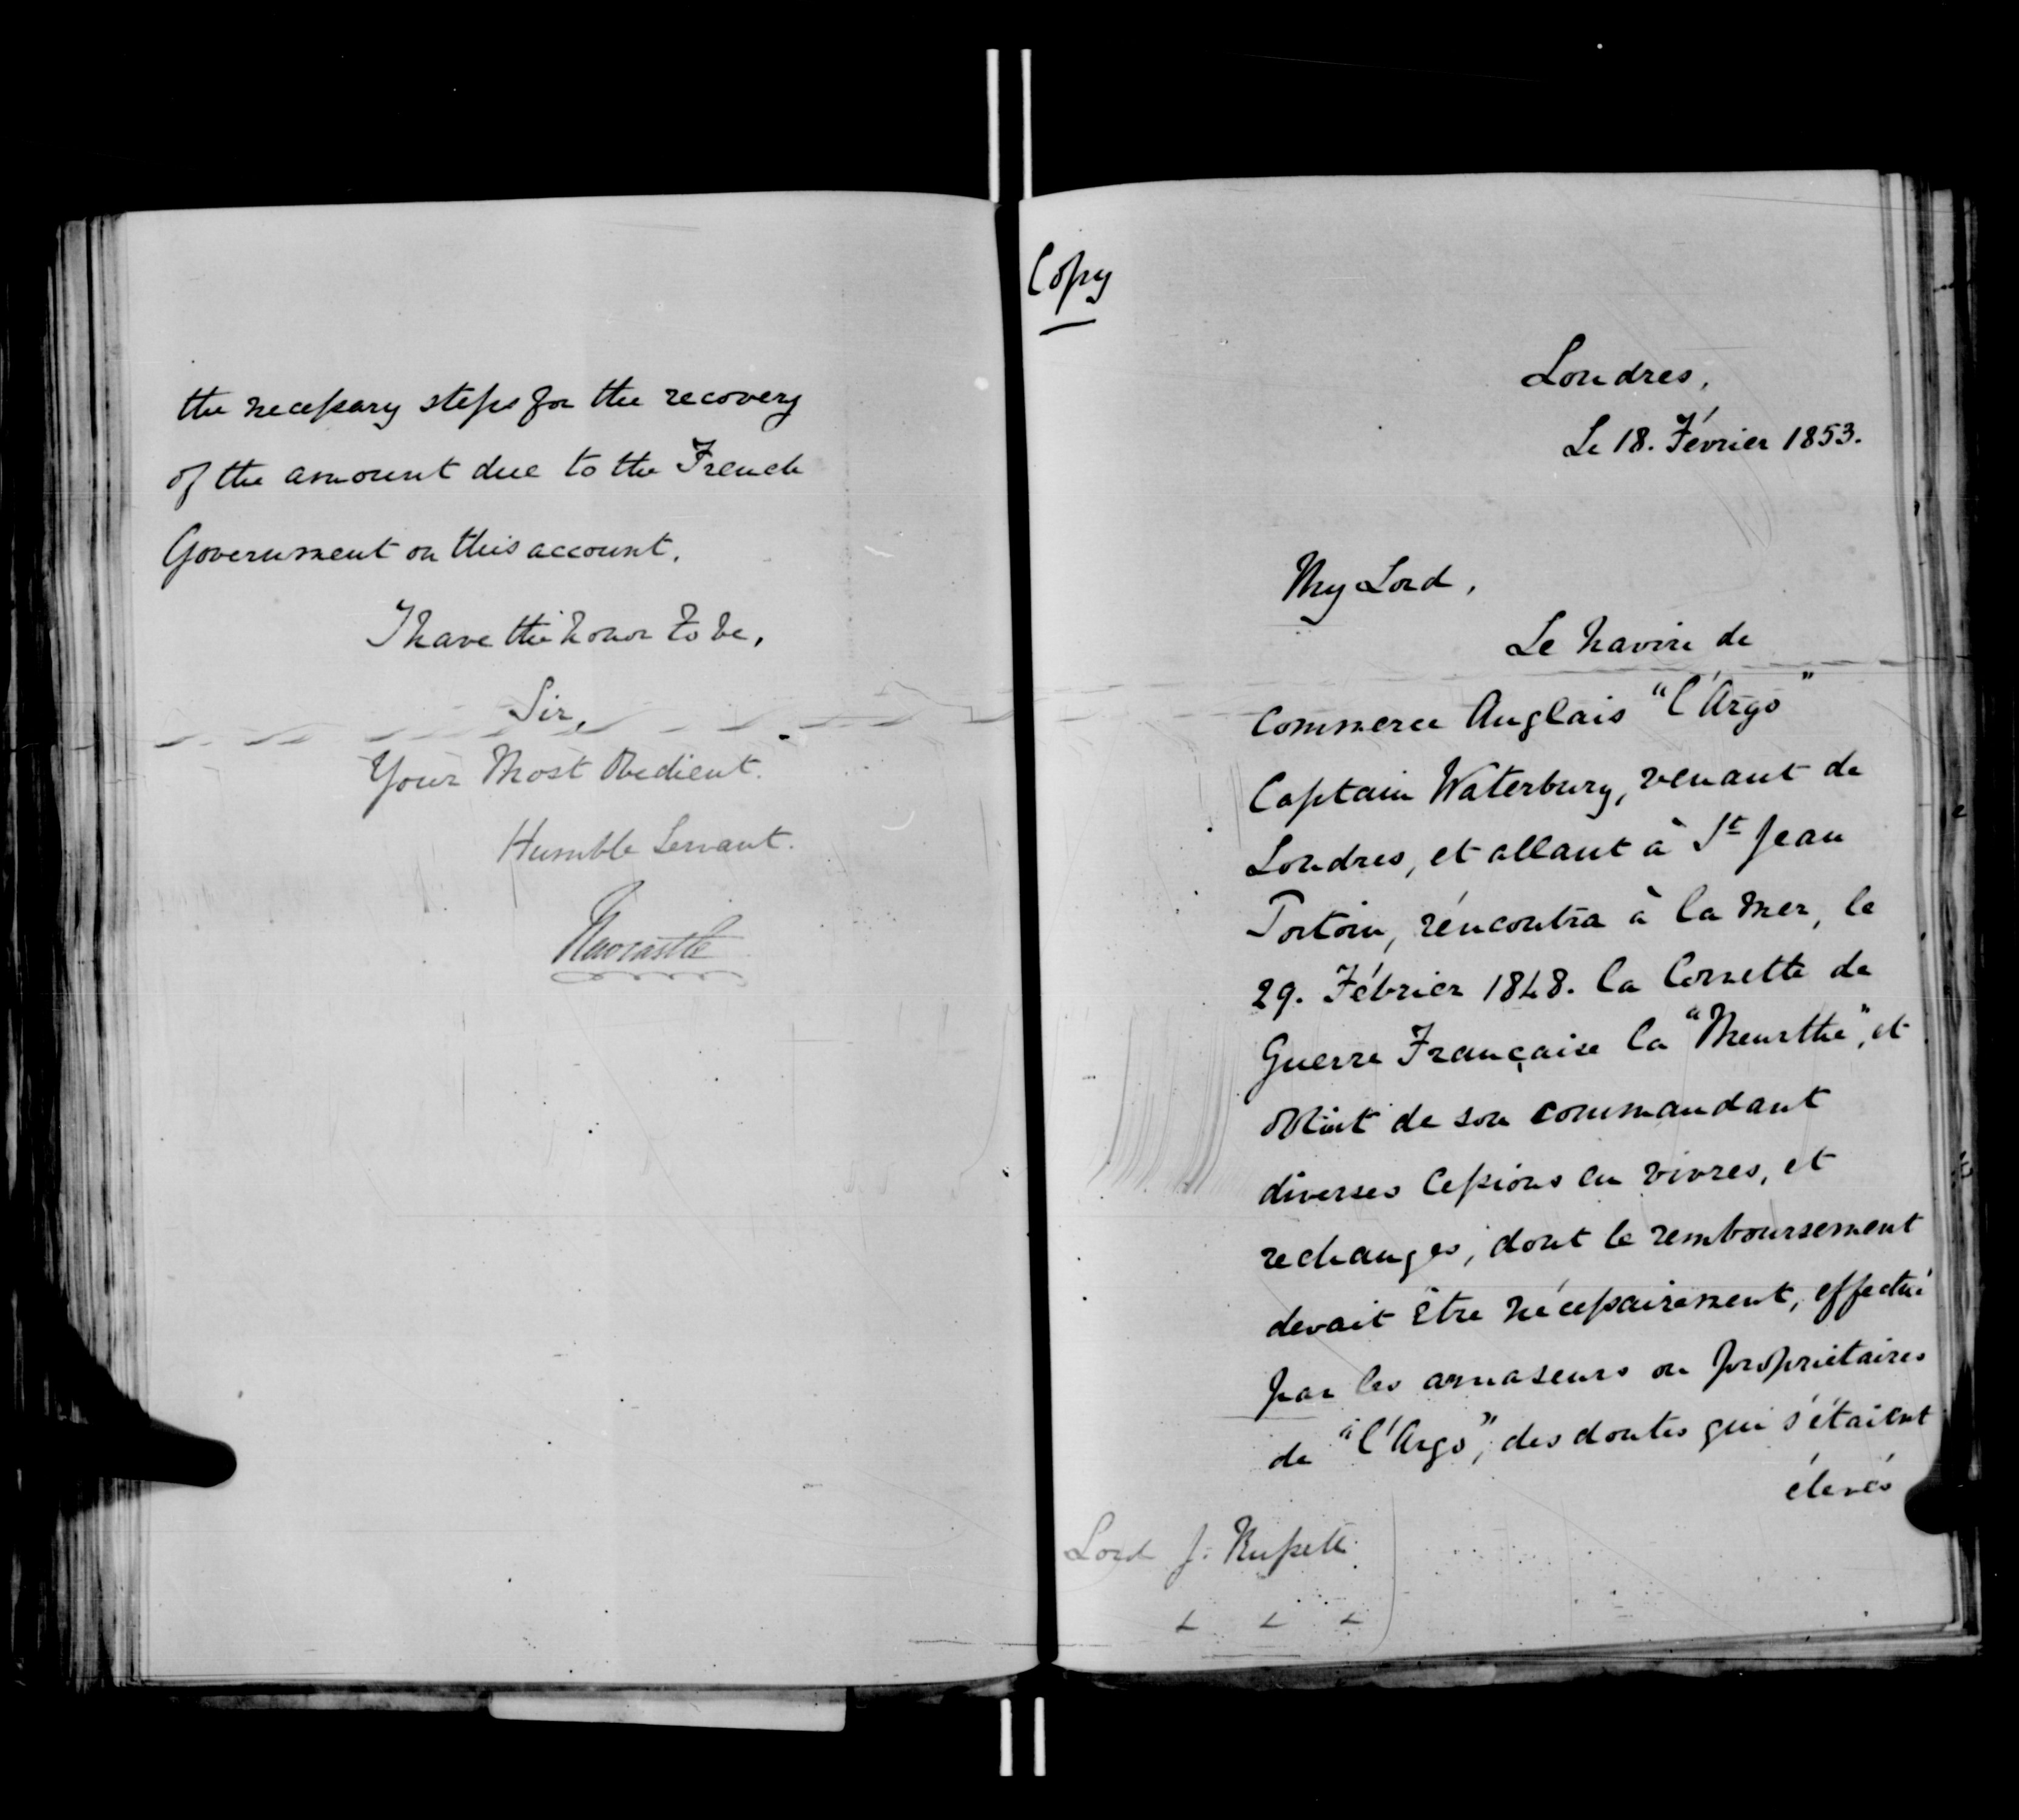 the necessary steps for the recovery
of the amount due to the French
Government on this account.
I have the honor to be,
Sir,
Your Most Obedient.
Humble Servant.
Newcastle
Copy
Londres,
Le 18. Février 1853.
My Lord,
Le Navire de
Commerce Anglais "l'Argo"
Captain Waterbury, venant de
Londres, et allant à St Jean
rencontra à la Mer, le
29. Fébrier 1848. la Corvette de
Guerre Française la "Meurthe", et
obtint de son commandant
diverses Cessions en vivres, et
rechanges, dont le remboursement
devait être nécessairement, effectué
par les armateurs ou propriétaires
de "l'Argo", des doutes qui s'étaient
élevés
Lord J. Russell